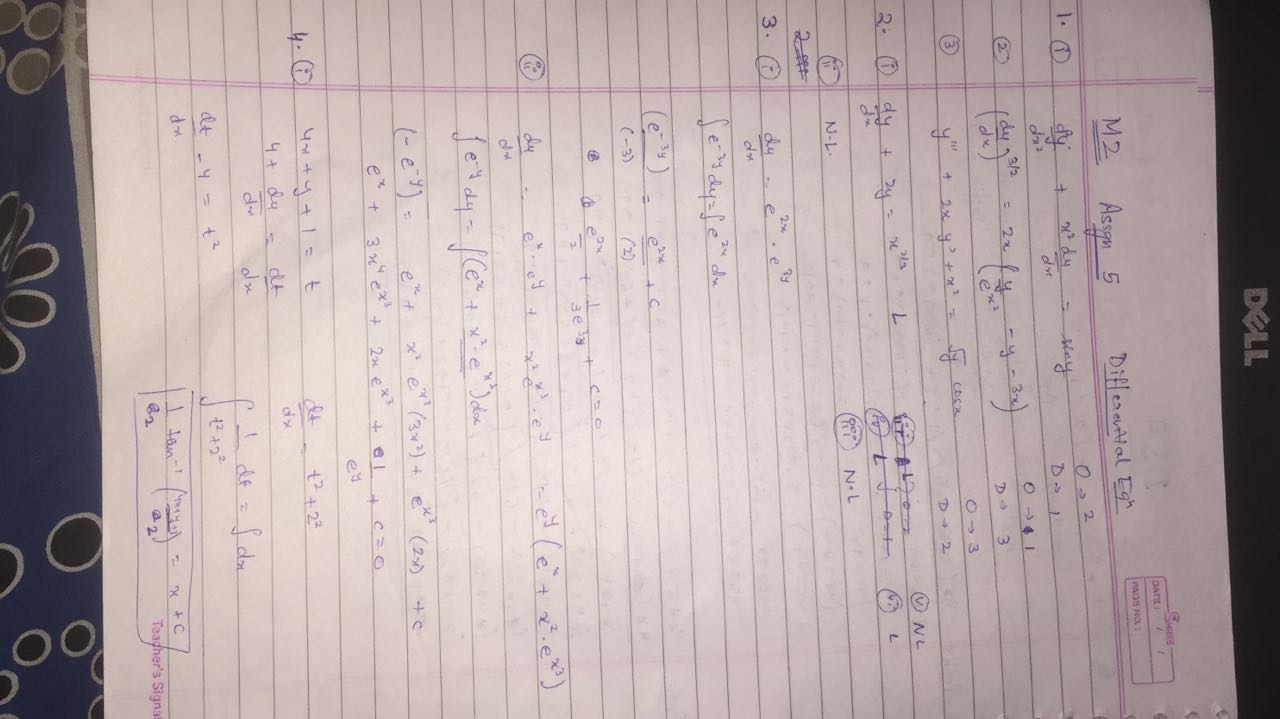 DELL
DATE: / /
PAGE NO.:
M2 Assgn 5 Differential Eqn
1. ① dy/dx² + x² dy/dx = siny O → 2
D → 1
② (dy/dx)^3/2 = 2x (y/e^x² - y - 3x) O → 1
D → 3
③ y''' + 2xy' + x² = √y cosx O → 3
D → 2
2. ⓘ dy/dx + 2y = x^2/3 L
ⓥ NL
ⓥⓘ L
ⓘⓘ N·L.
ⓘⓘⓘ N·L
3. ⓘ dy/dx = e^2x · e^3y
∫ e^-3y dy = ∫ e^2x dx
(e^-3y)/(-3) = e^2x/(2) + c
e^2x/2 + 1/3e^3y + c = 0
ⓘⓘ dy/dx = e^x · e^y + x² e^x³ · e^y = e^y (e^x + x² · e^x³)
∫ e^-y dy = ∫ (e^x + x² · e^x³) dx
(- e^-y) = e^x + x² e^x³ (3x²) + e^x³ (2x) + c
e^x + 3x⁴ e^x³ + 2x e^x³ + 1/e^y + c = 0
4. ⓘ 4x + y + 1 = t
4 + dy/dx = dt/dx
dt/dx - 4 = t²
dt/dx = t² + 2²
∫ 1/t²+2² dt = ∫ dx
1/2 tan⁻¹ (4x+y+1/2) = x + c
Teacher's Signa